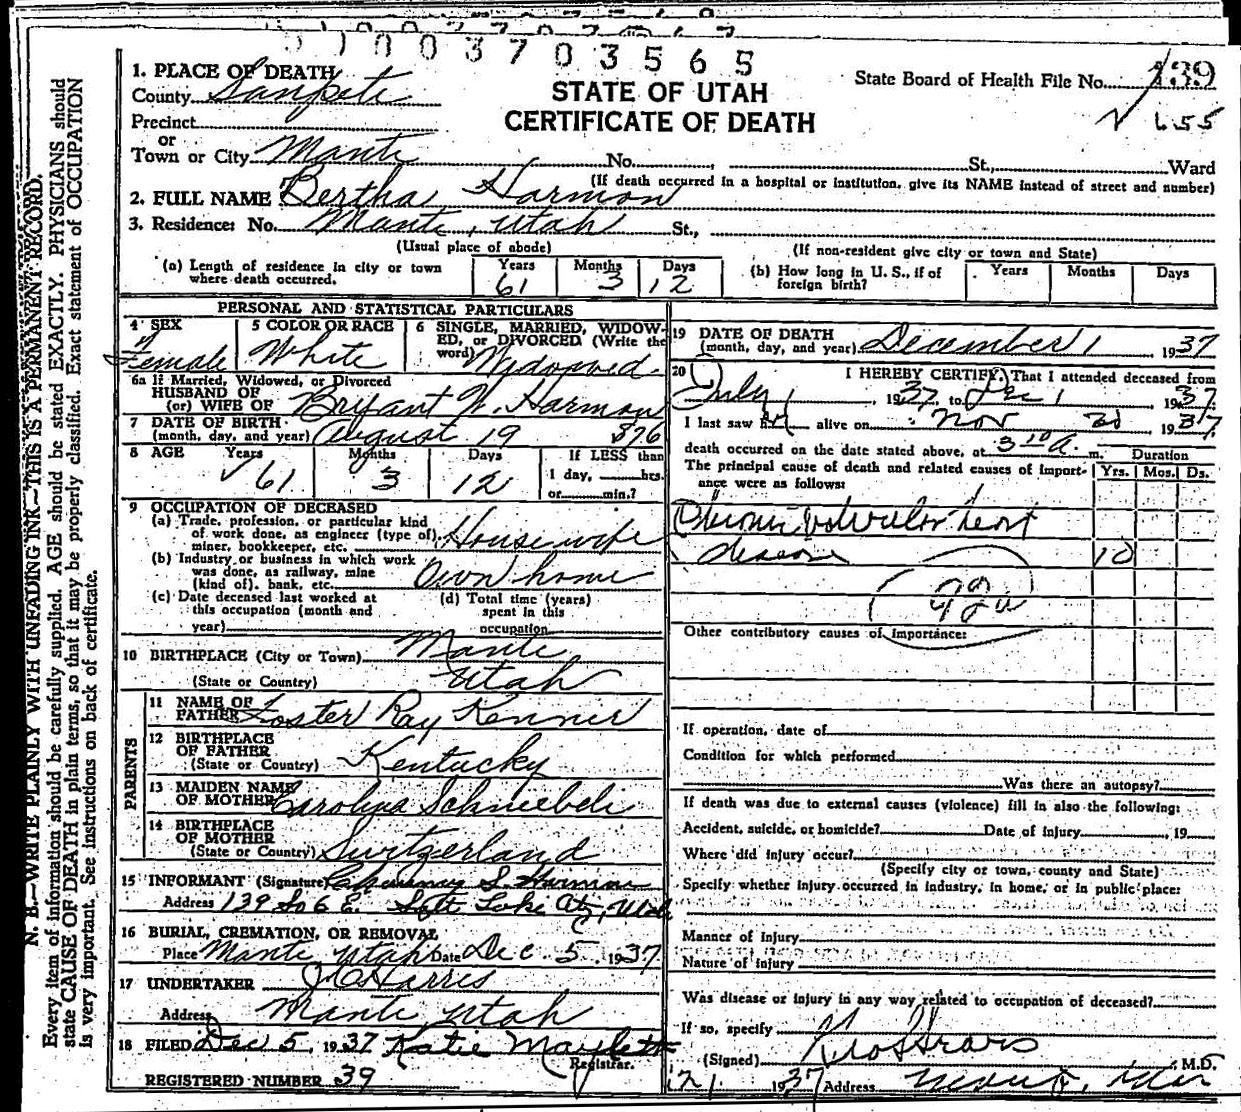 5100370 3565
1. PLACE OF DEATH
County Sanpete
STATE OF UTAH
CERTIFICATE OF DEATH
State Board of Health File No. 139
655
Precinct
or
Town or City Manti No. , St., Ward
(If death occurred in a hospital or institution, give its NAME instead of street and number)
2. FULL NAME Bertha Harmon
3. Residence: No. Manti, Utah St.,
(Usual place of abode) (If non-resident give city or town and State)
(a) Length of residence in city or town where death occurred. Years 61 Months 3 Days 12
(b) How long in U. S., if of foreign birth? Years Months Days
PERSONAL AND STATISTICAL PARTICULARS
4 SEX Female
5 COLOR OR RACE White
6 SINGLE, MARRIED, WIDOWED, or DIVORCED (Write the word) Widowed
6a If Married, Widowed, or Divorced
HUSBAND OF
(or) WIFE OF Bryant W. Harmon
7 DATE OF BIRTH
(month, day, and year) August 19 876
8 AGE Years 61 Months 3 Days 12
If LESS than
1 day, hrs.
or min.?
9 OCCUPATION OF DECEASED
(a) Trade, profession, or particular kind
of work done, as engineer (type of),
miner, bookkeeper, etc. Housewife
(b) Industry or business in which work
was done, as railway, mine
(kind of), bank, etc. Own home
(c) Date deceased last worked at
this occupation (month and
year)
(d) Total time (years)
spent in this
occupation
10 BIRTHPLACE (City or Town) Manti
(State or Country) Utah
PARENTS
11 NAME OF
FATHER Foster Ray Kenner
12 BIRTHPLACE
OF FATHER
(State or Country) Kentucky
13 MAIDEN NAME
OF MOTHER Carolina Schneebeli
14 BIRTHPLACE
OF MOTHER
(State or Country) Switzerland
15 INFORMANT (Signature) S. Harmon
Address 139 So 6 E. Salt Lake City, Utah
16 BURIAL, CREMATION, OR REMOVAL
Place Manti Utah Date Dec. 5, 1937
17 UNDERTAKER J C Harris
Address Manti Utah
18 FILED Dec 5, 1937 Katie
Registrar.
REGISTERED NUMBER 39
19 DATE OF DEATH
(month, day, and year) December 1 1937
20 I HEREBY CERTIFY, That I attended deceased from
July 1, 1937 to Dec 1 1937
I last saw her alive on Nov 30 1937
death occurred on the date stated above, at 3 10 a. m.
Duration
The principal cause of death and related causes of importance were as follows: Yrs. Mos. Ds.
Chronic valvular heart
disease 10
92a
Other contributory causes of importance:
If operation, date of
Condition for which performed
Was there an autopsy?
If death was due to external causes (violence) fill in also the following:
Accident, suicide, or homicide? Date of injury , 19
Where did injury occur?
(Specify city or town, county and State)
Specify whether injury occurred in industry, in home, or in public place:
Manner of injury
Nature of injury
Was disease or injury in any way related to occupation of deceased?
If so, specify
(Signed) , M.D.
1937 Address Manti, Utah
N. B.—WRITE PLAINLY WITH UNFADING INK—THIS IS A PERMANENT RECORD.
Every item of information should be carefully supplied. AGE should be stated EXACTLY. PHYSICIANS should
state CAUSE OF DEATH in plain terms, so that it may be properly classified. Exact statement of OCCUPATION
is very important. See instructions on back of certificate.